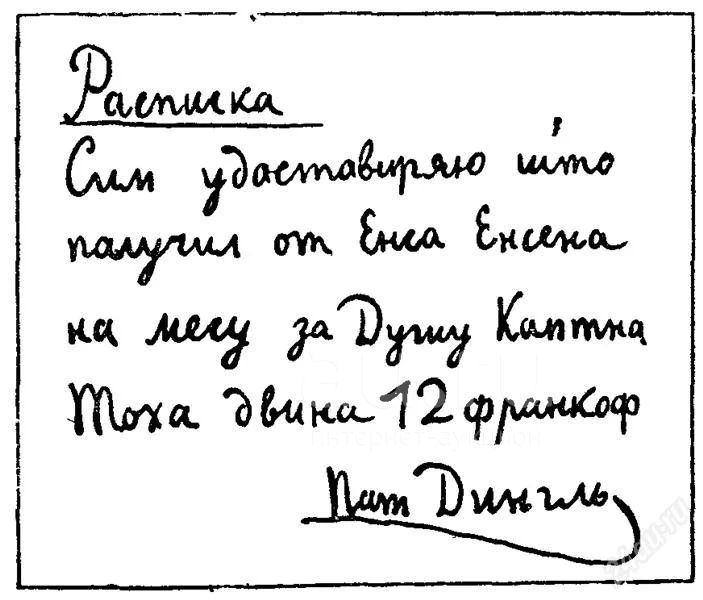 Расписка
Сим удаставиряю што
палучил от Енса Енсена
на месу за Душу Каптна
Тоха двина 12 франкоф
Пат Дингль